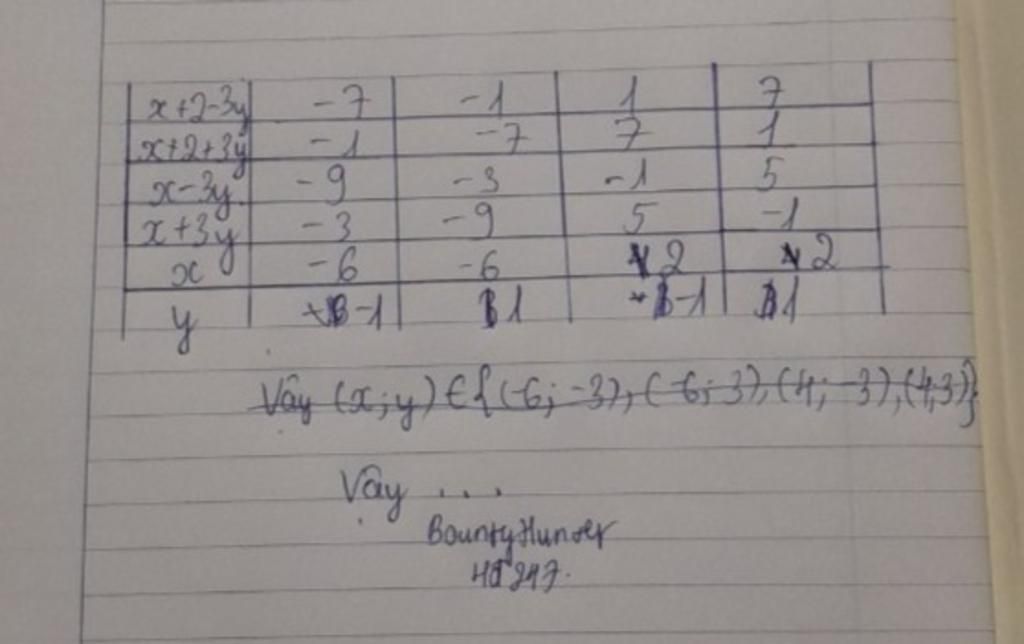 x+2-3y -7 -1 1 7
x+2+3y -1 -7 7 1
x-3y -9 -3 -1 5
x+3y -3 -9 5 -1
x -6 -6 2 2
y -1 1 -1 1
Vậy (x;y) ∈ {(-6; -3), (-6; 3), (4; -3), (4;3)}
Vậy ...
BountyHunter